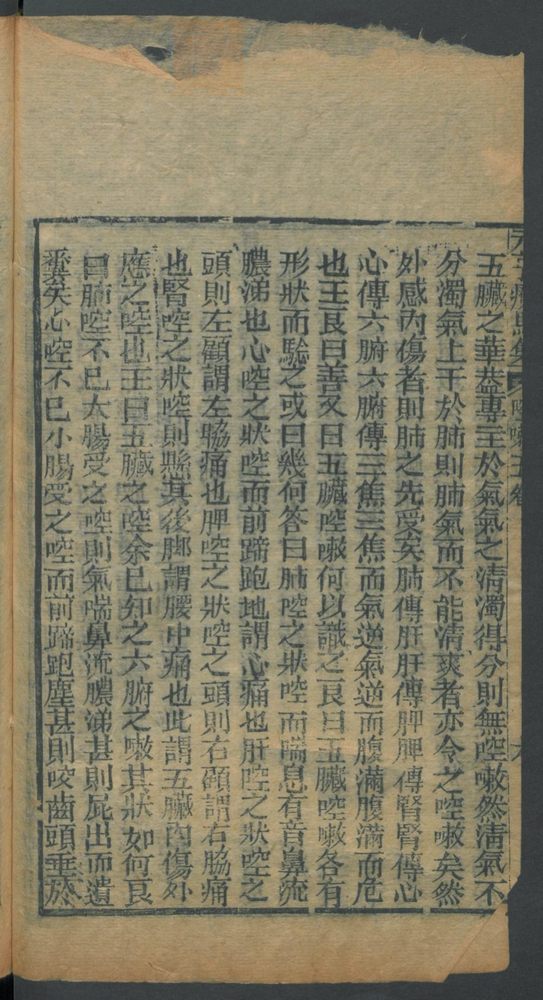 元亨療馬集 啌嗽 五卷 六
五臟之華葢專主於氣氣之清濁得分則無啌嗽然清氣不
分濁氣上干於肺則肺氣而不能清爽者亦令之啌嗽矣然
外感內傷者則肺之先受矣肺傳肝肝傳脾脾傳腎腎傳心
心傳六腑六腑傳三焦三焦而氣逆氣逆而腹滿腹滿而危
也王良曰善又曰五臟啌嗽何以識之良曰五臟啌嗽各有
形狀而騐之或曰幾何答曰肺啌之狀啌而喘息有音鼻流
膿涕也心啌之狀啌而前蹄跑地謂心痛也肝啌之狀啌之
頭則左顧謂左脇痛也脾啌之狀啌之頭則右顧謂右脇痛
也腎啌之狀啌則懸其後脚謂腰中痛也此謂五臟內傷外
應之啌也王曰五臟之啌余已知之六腑之嗽其狀如何良
曰肺啌不已大腸受之啌則氣喘鼻流膿涕甚則屍出而遺
糞矣心啌不已小腸受之啌而前蹄跑塵甚則咬齒頭垂於